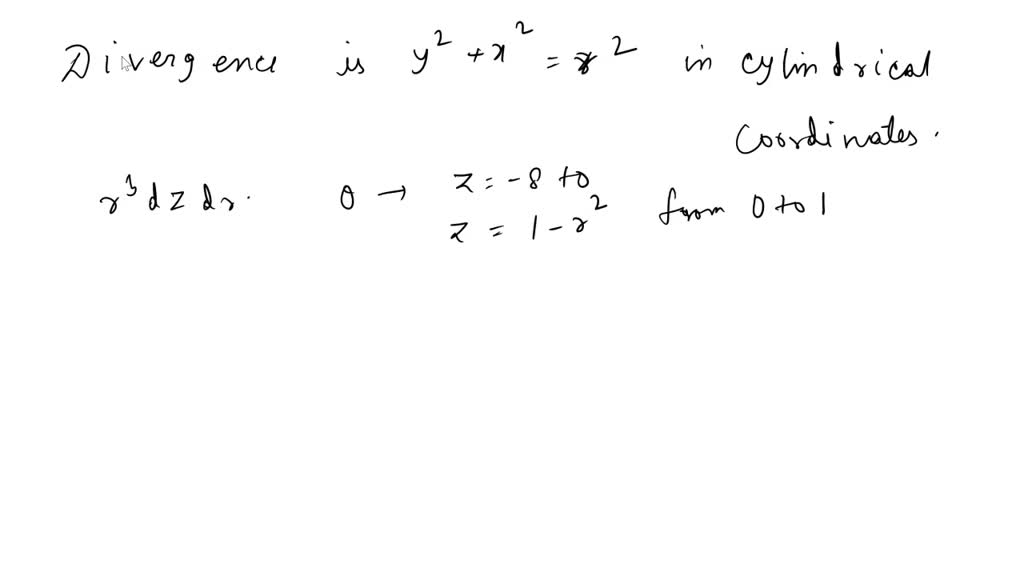 Divergence is y² + x² = r² in cylindrical
coordinates.
r³ dz dr. θ → z = -8 to
z = 1 - r² from 0 to 1